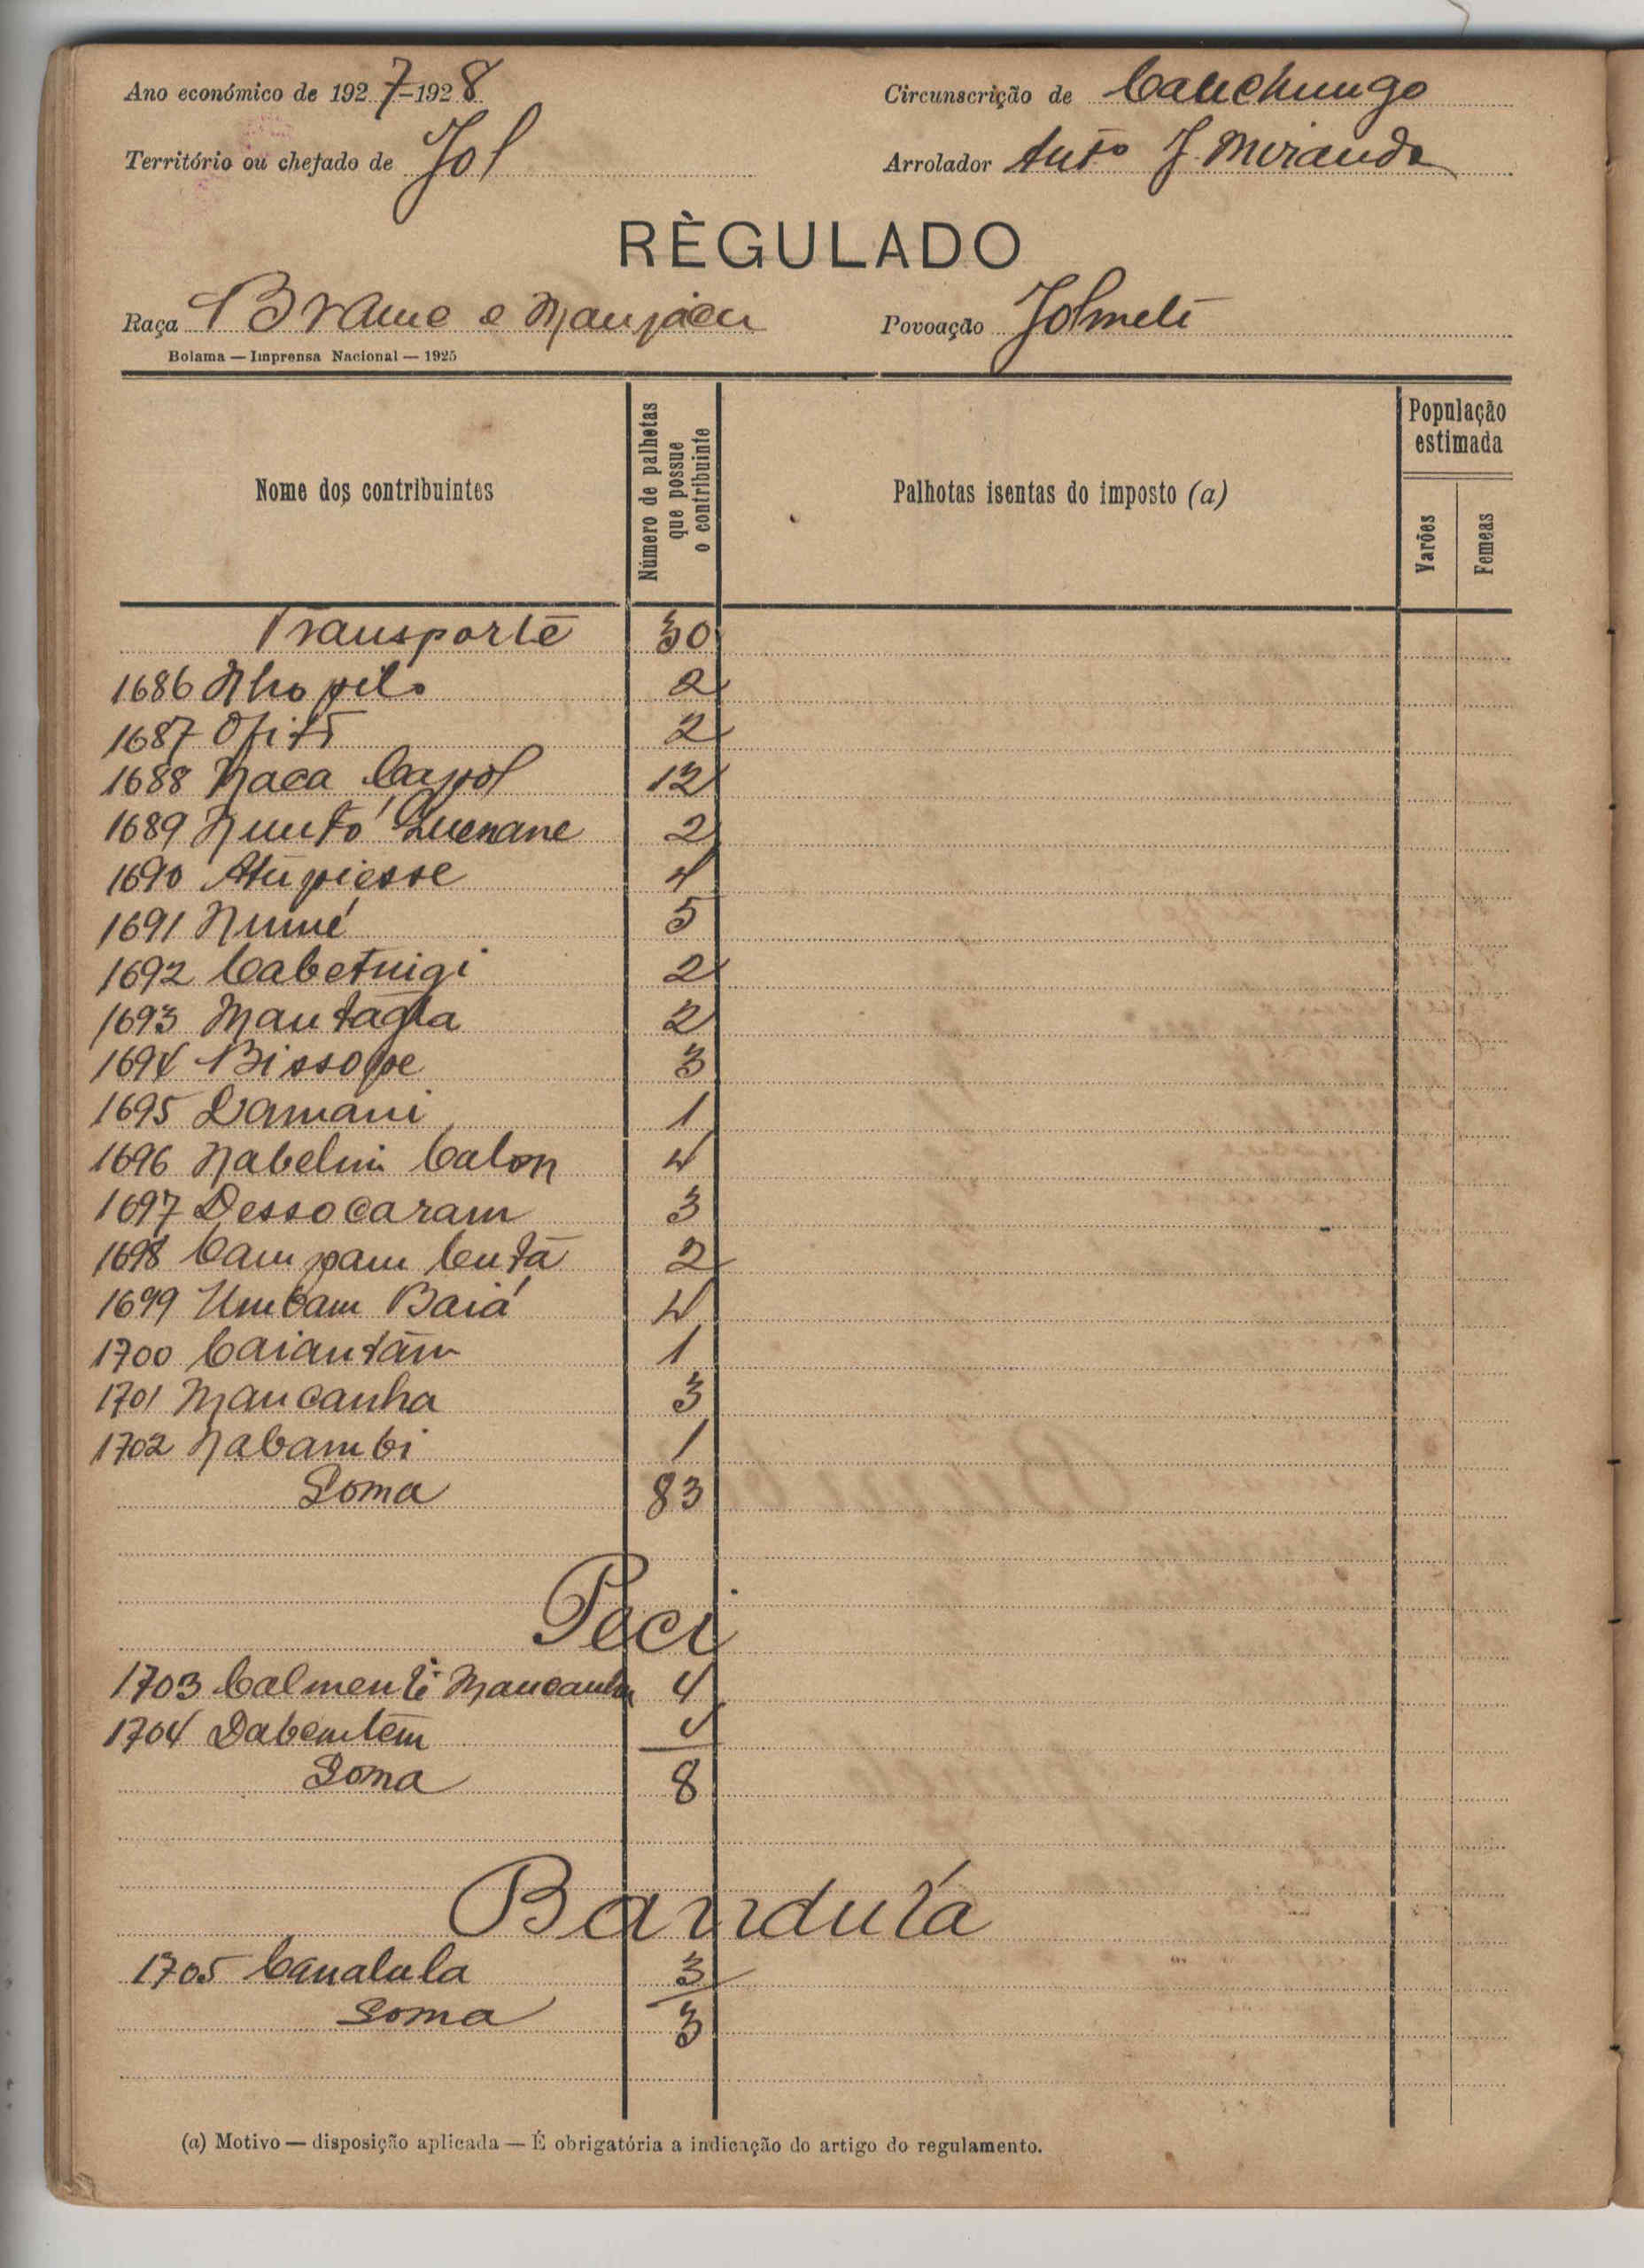 Ano económico de 1927-1928
Circunscrição de Cauchungo
Território ou chefado de Jol
Arrolador Antº J. Miranda
RÈGULADO
Raça Brame e Manjacu
Povoação Jolmeti
Bolama — Imprensa Nacional — 1925
Nome dos contribuintes
Número de palhotas
que possue
o contribuinte
Palhotas isentas do imposto (a)
População
estimada
Varões
Femeas
Transporte 30
1686 Nho 2
1687 2
1688 Naca Capol 12
1689 Nuntó Quenane 2
1690 Atupiesse 4
1691 Numé 5
1692 Cabetuigi 2
1693 Mantagta 2
1694 Bissope 3
1695 Damani 1
1696 Nabelim Calon 4
1697 Dessocaram 3
1698 Campam Centa 2
1699 Umbam Baiá 4
1700 Caiantam 1
1701 Mancanha 3
1702 Nabambi 1
Soma 83
Peci
1703 Calmenti Mancanha 4
1704 Dabemtem 4
Soma 8
Bandutá
1705 Canalula 3
Soma 3
(a) Motivo — disposição aplicada — É obrigatória a indicação do artigo do regulamento.